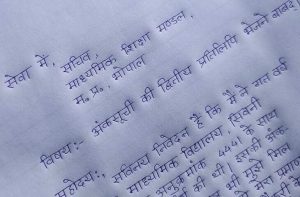 सेवा में, सचिव,
माध्यमिक शिक्षा मण्डल,
म. प्र. भोपाल
विषय:- अंकसूची की द्वितीय प्रतिलिपि भेजने बाबद्
महोदय:, सविनय निवेदन है कि मैं ने गत वर्ष
माध्यमिक विद्यालय, सिवनी
अनुक्रमांक 4441 के साथ
की थी। इसकी अंक
भी मुझे मिल
मेरा प्रमा